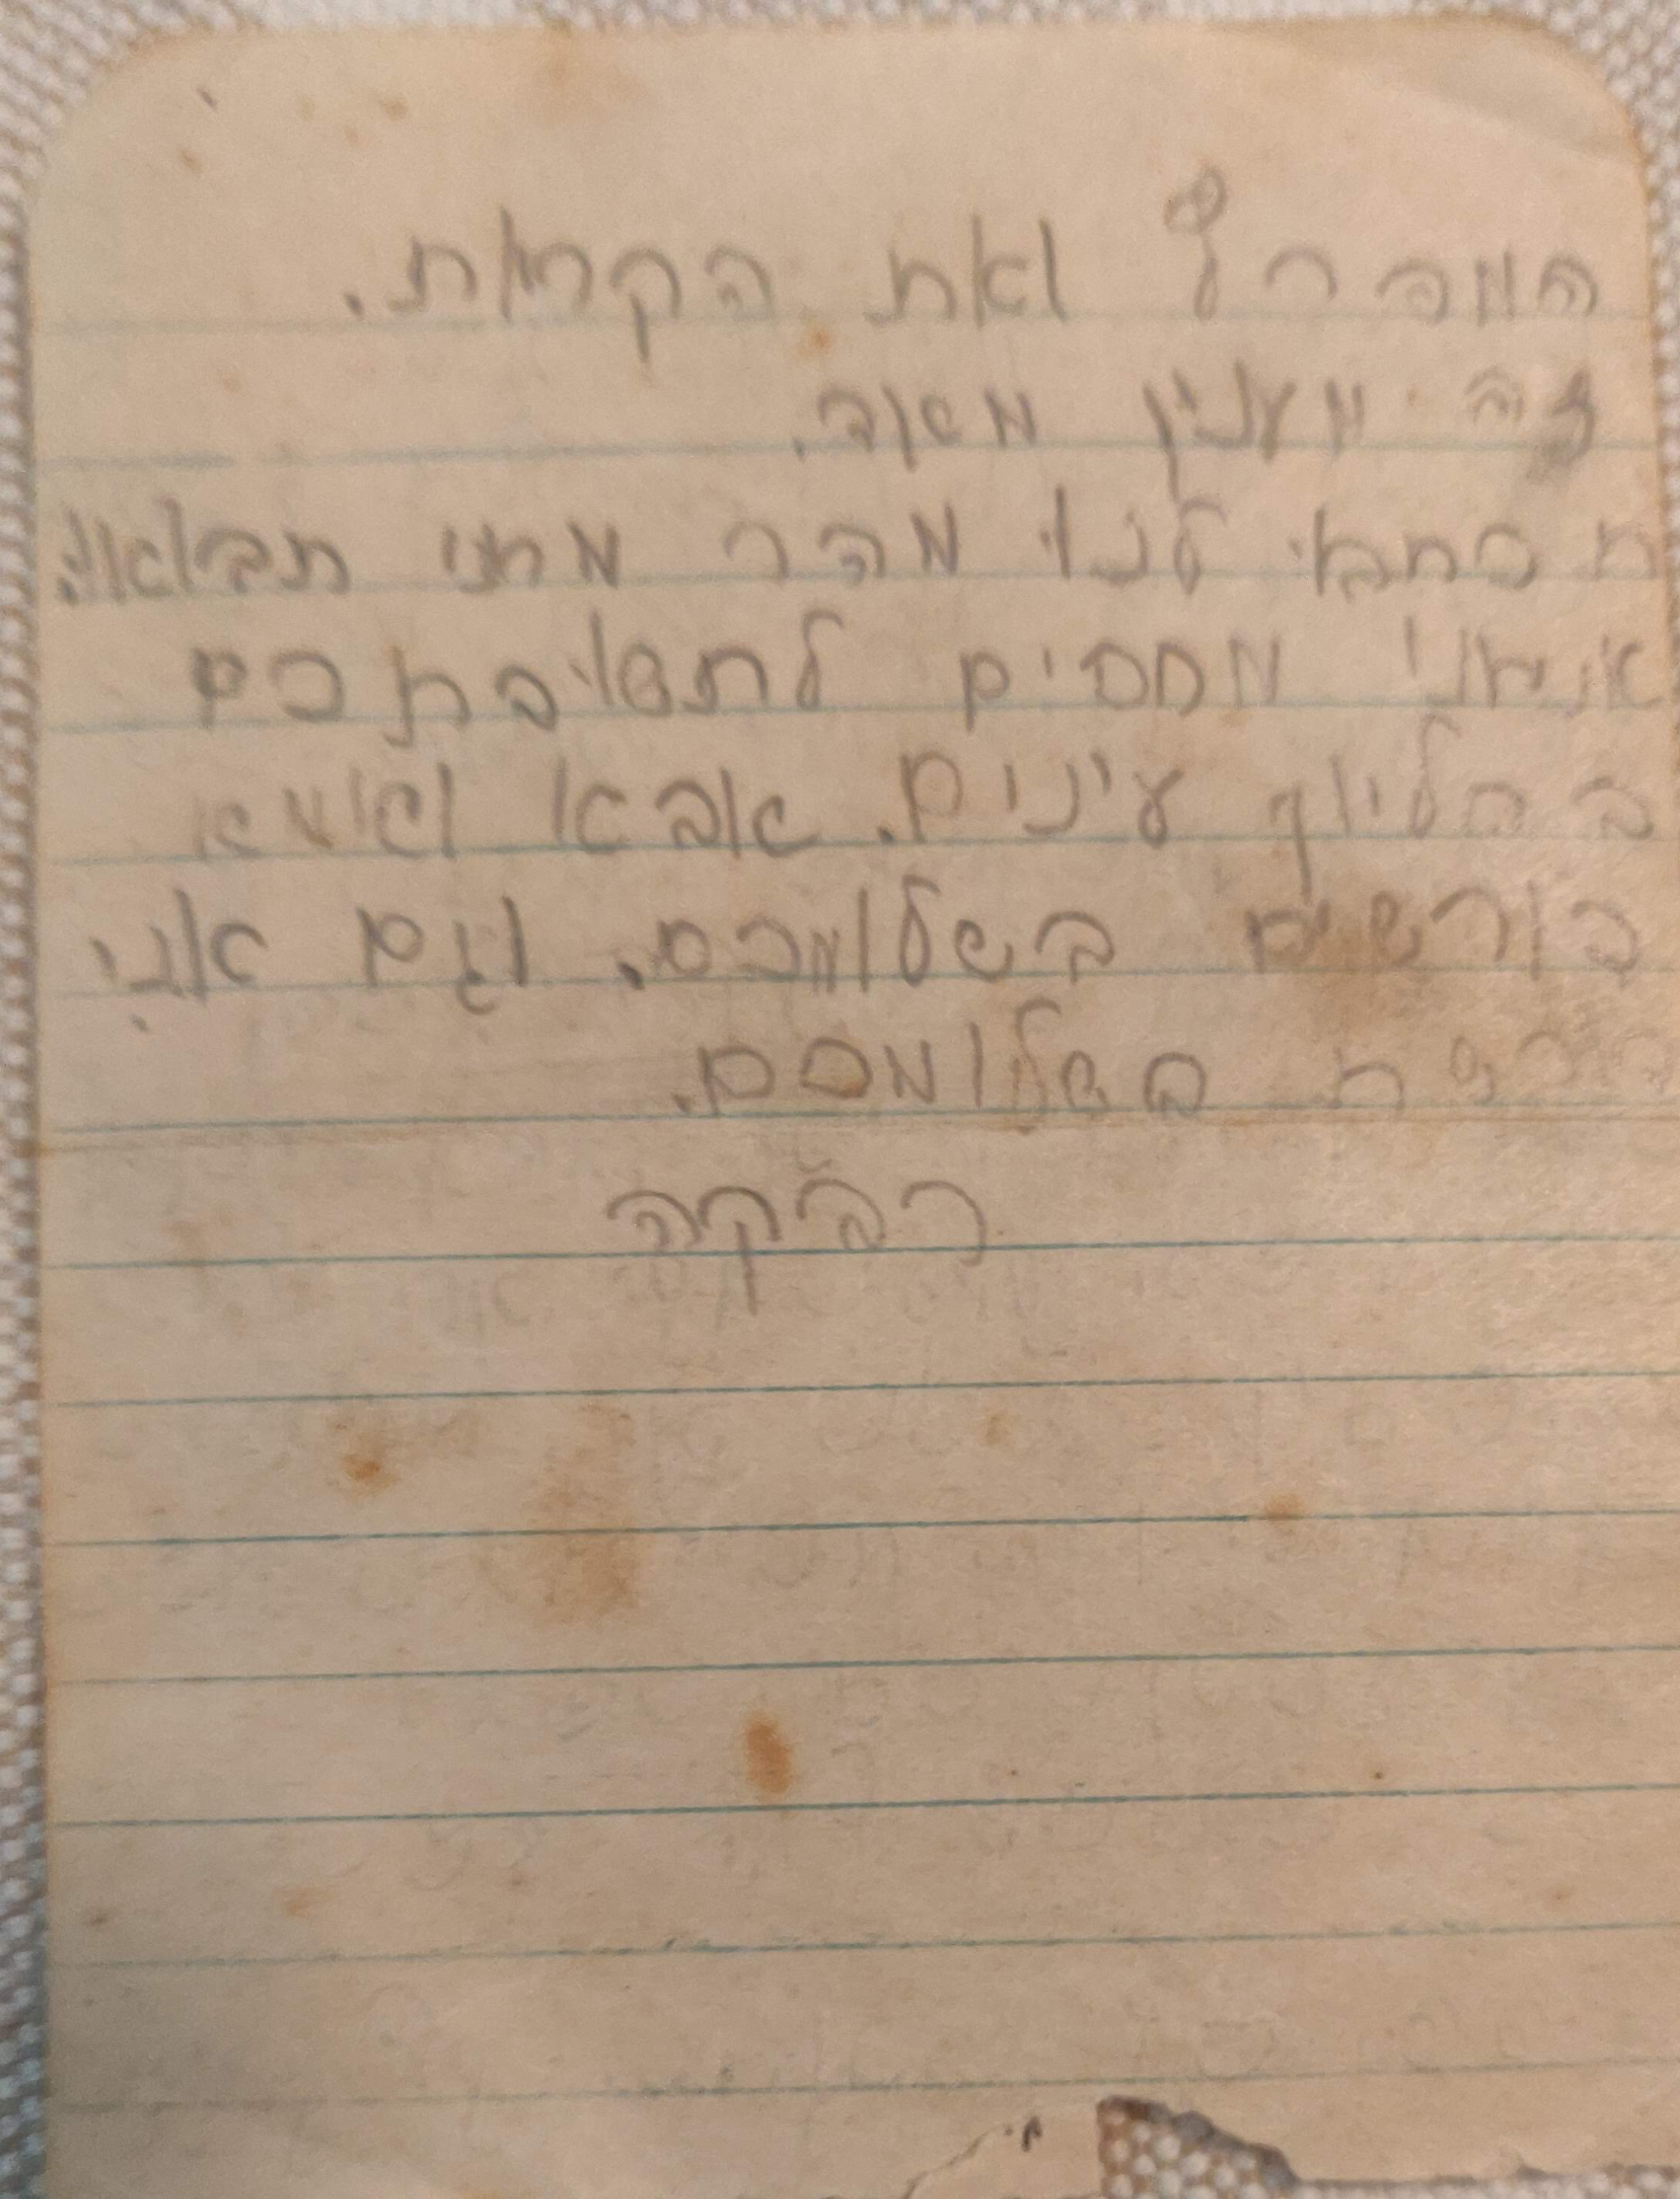 המכרלף ואת הקריות.
זה מענין מאוד.
תכתבו לנו מהר מתי תבואו.
אנחנו מחכים לתשובתכם
בכליון עינים. אבא ואמא
דורשים בשלומכם. וגם אני
דורשת בשלומכם.
רבקה